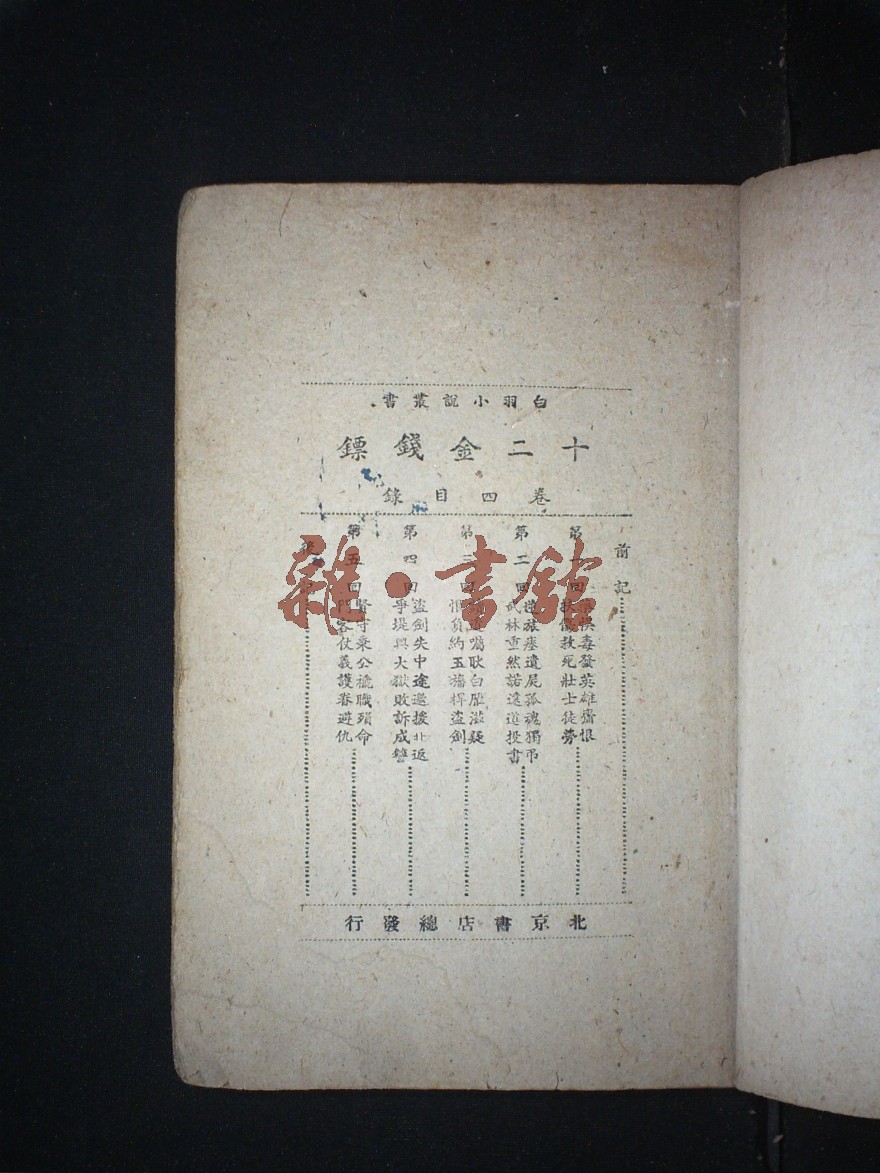 白羽小說叢書
十二金錢鏢
卷四目錄
前記
第一回
毒發英雄齎恨
救死壯士徒勞
第二回
逆旅瘞遺屍孤魂獨弔
武林重然諾遠道投書
第三回
耿白雁滋疑
負約玉旛桿盜劍
第四回
盜劍失中途邀援北返
爭堤興大獄敗訴成讐
第五回
賢守秉公褫職殞命
門客仗義護眷避仇
後記
北京書店總發行
雜·書館